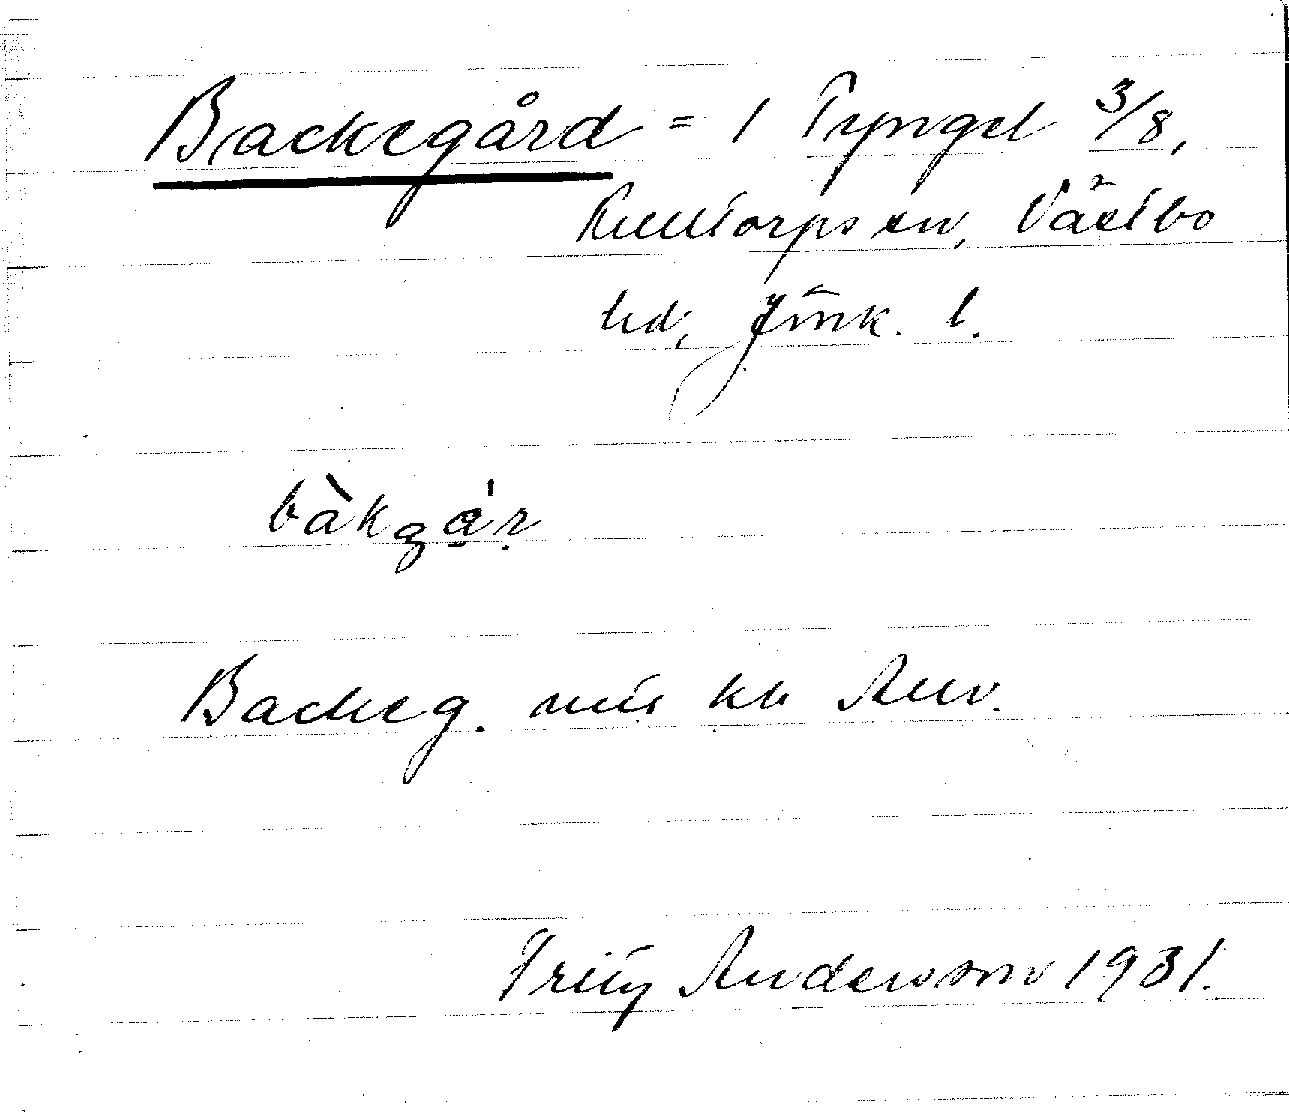 Backegård = 1 Tyngel 3/8,
Kulltorps sn, Västbo
hd, Jönk. l.
bàkgɑ̣'ṛ
Backeg. mts kb Anv.
Fritz Andersson 1931.